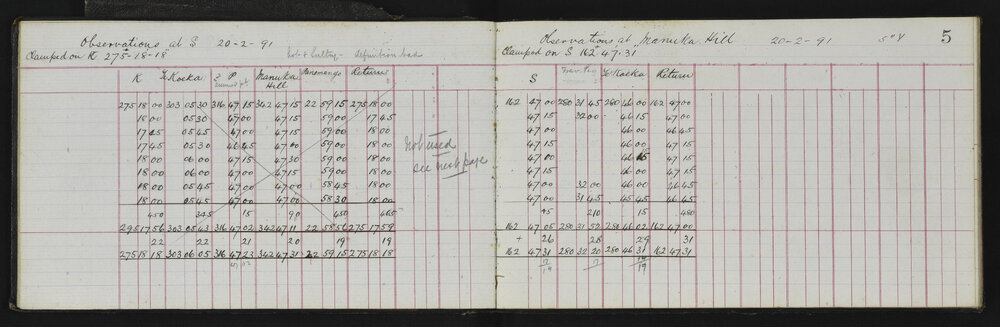 Observations at S 20-2-91
Clamped on K 275-18-18
definition bad
K Te Kocka P Manuka Hill Returns
275 18 00 303 05 30 316 47 15 342 47 15 22 59 15 275 18 00
18 00 05 30 47 00 47 15 59 00 17 45
17 45 05 45 47 00 47 15 59 00 18 00
17 45 05 30 46 45 47 00 59 00 18 00
18 00 06 00 47 15 47 30 59 00 18 00
18 00 06 00 47 00 47 15 59 00 18 00
18 00 05 45 47 00 47 00 58 45 18 00
18 00 05 45 47 00 47 00 58 30 18 00
450 345 15 90 450 465
295 17 56 303 05 43 316 47 02 342 47 11 22 58 56 275 17 59
22 22 21 20 19 19
275 18 18 303 06 05 316 47 23 342 47 31 22 59 15 275 18 18
Not used
see next page
Observations at Manuka Hill 20-2-91 5"Y 5
Clamped on S 162-47-31
S Trav. Peg Te Kocka Return
162 47 00 280 31 45 280 46 00 162 47 00
47 15 32 00 46 00 47 15
47 00 46 00 46 45
47 15 46 00 47 15
47 00 46 15 47 15
47 15 46 00 47 15
47 00 32 00 46 00 46 45
47 00 31 45 45 45 46 45
45 210 15 480
162 47 05 280 31 52 280 46 02 162 47 00
+ 26 28 29 31
162 47 31 280 32 20 280 46 31 162 47 31